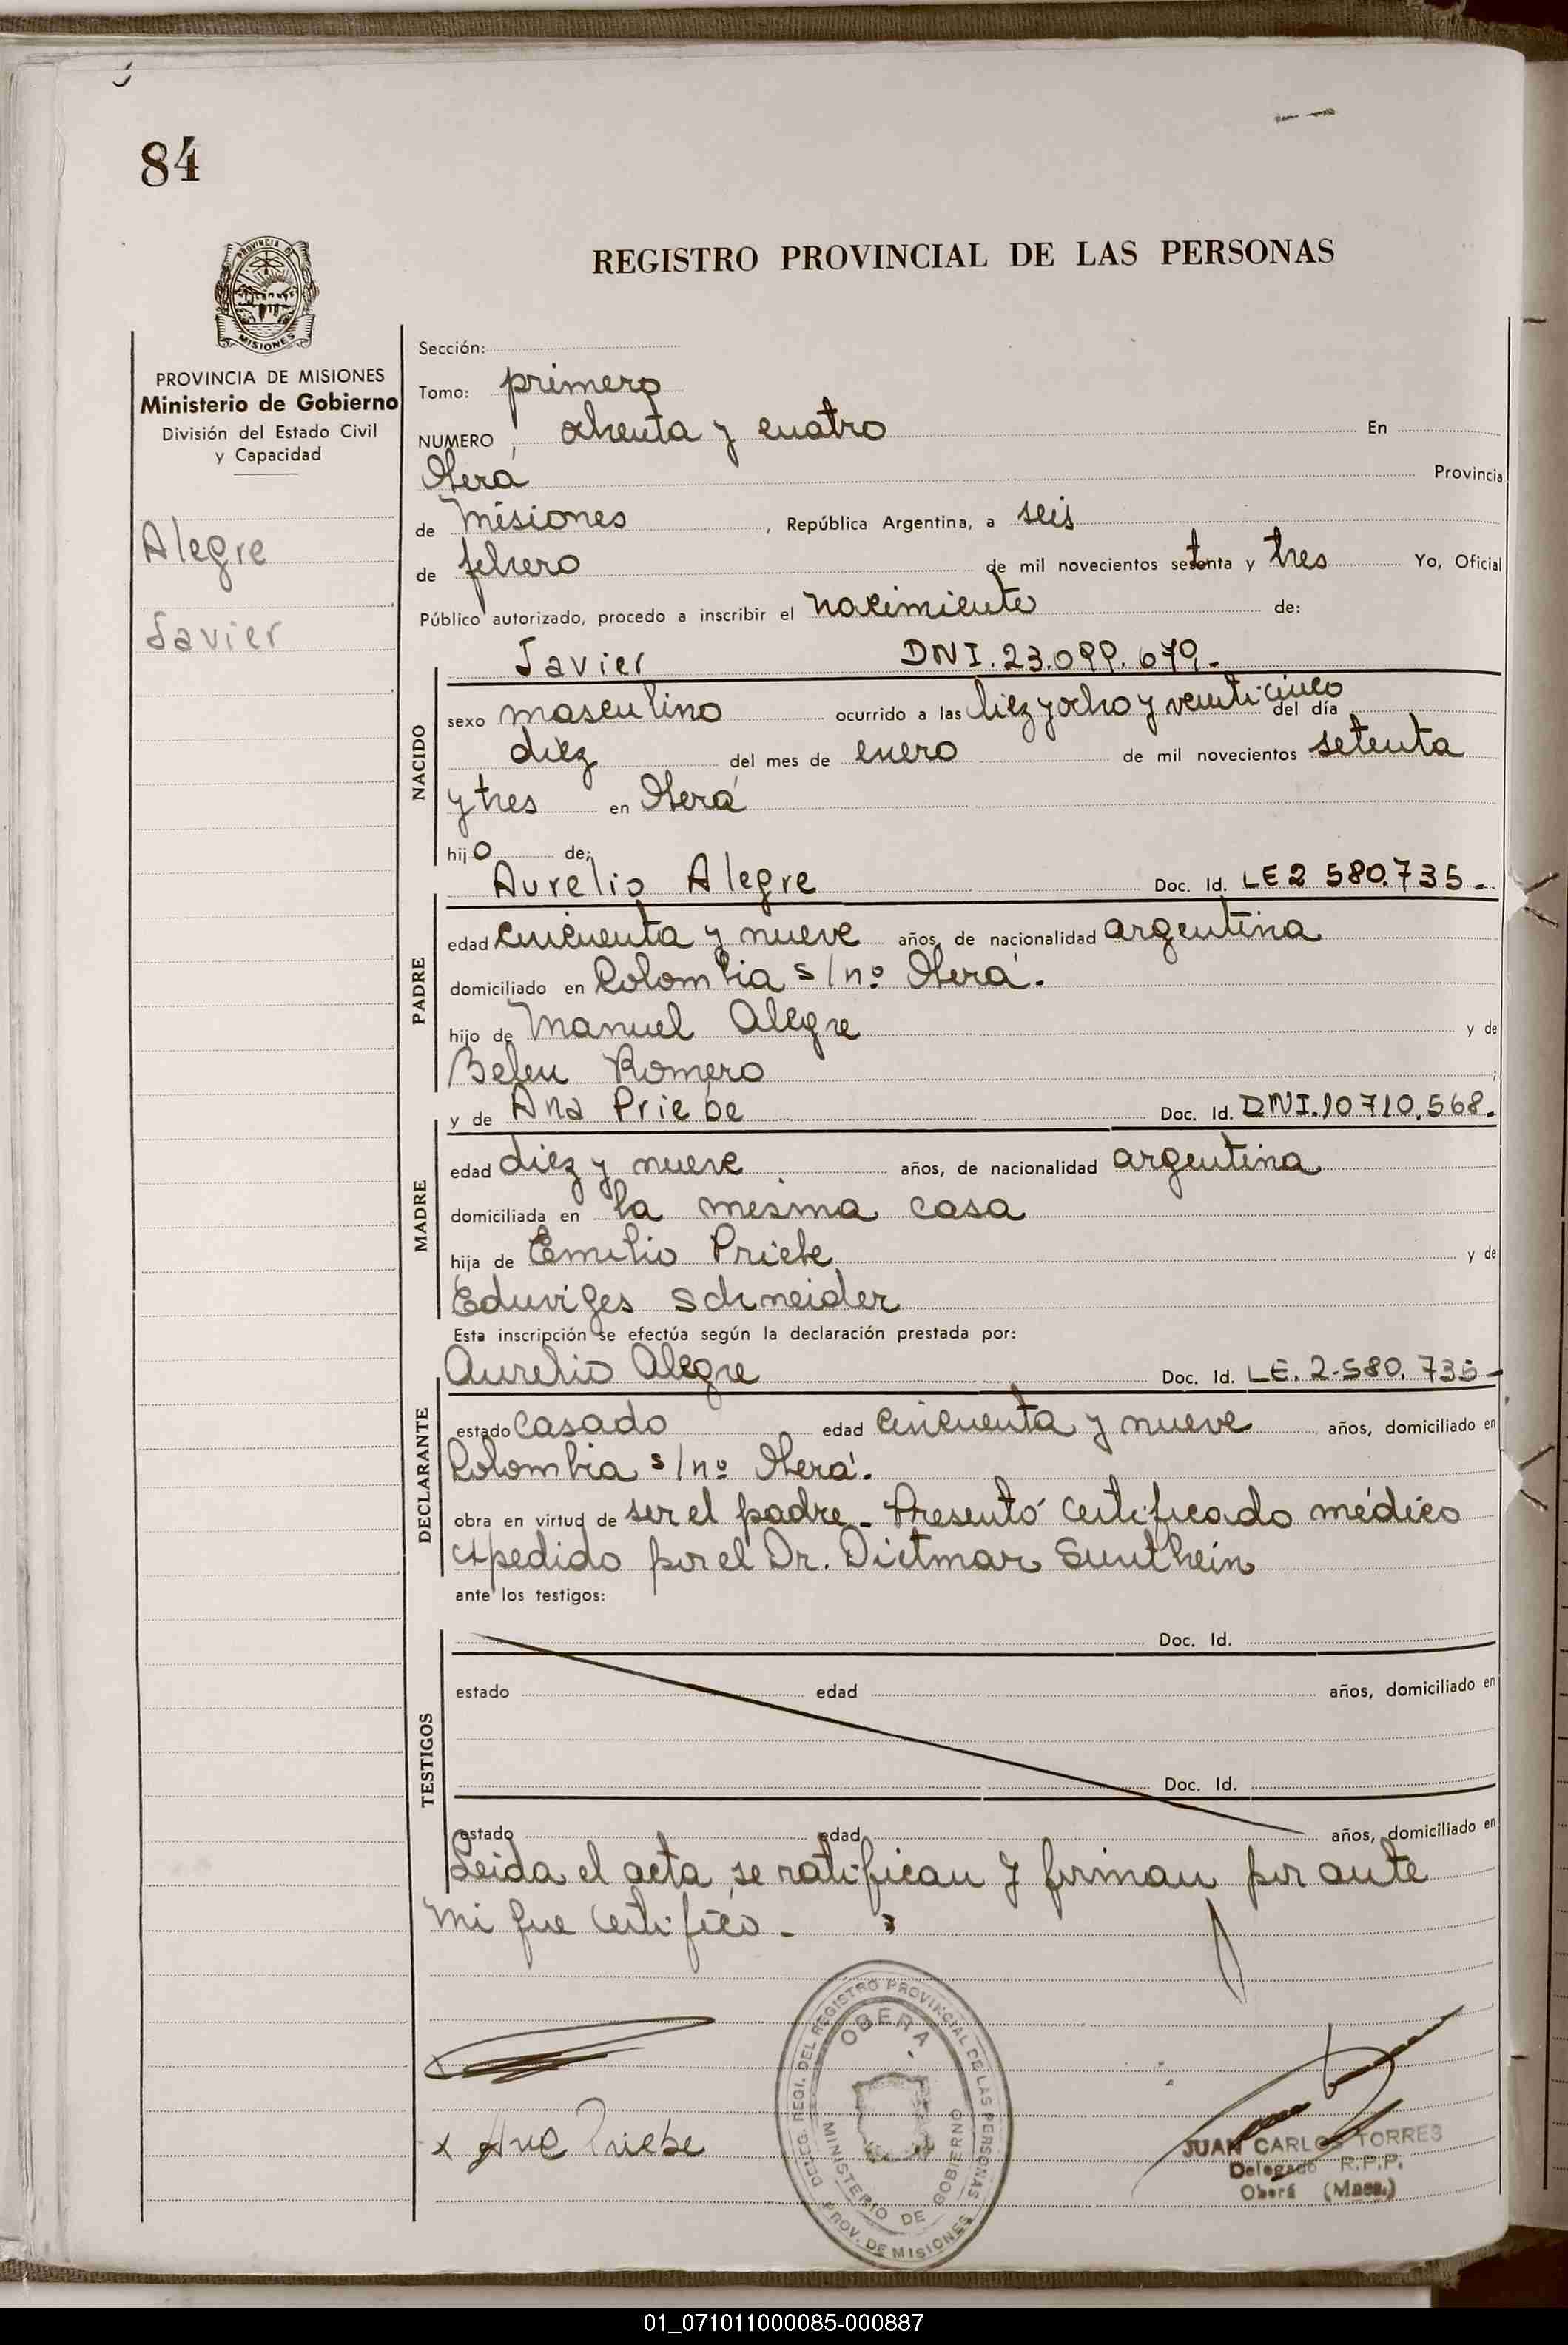 84
REGISTRO PROVINCIAL DE LAS PERSONAS
PROVINCIA DE MISIONES
Ministerio de Gobierno
División del Estado Civil
y Capacidad
Alegre
Javier
Sección:
Tomo: primero
NUMERO ochenta y cuatro En
Oberá Provincia
de Misiones, República Argentina, a seis
de febrero de mil novecientos setenta y tres Yo, Oficial
Público autorizado, procedo a inscribir el nacimiento de:
Javier DNI.23.099.679.-
NACIDO
sexo masculino ocurrido a las diez y ocho y veinticinco del día
diez del mes de enero de mil novecientos setenta
y tres en Oberá
hijo de:
Aurelio Alegre Doc. Id. LE 2 580.735-
PADRE
edad cincuenta y nueve años, de nacionalidad argentina
domiciliado en Colombia s/nº Oberá.
hijo de Manuel Alegre y de
Belen Romero;
y de Ana Priebe Doc. Id. DNI.10710.568.
MADRE
edad diez y nueve años, de nacionalidad argentina
domiciliada en la mesima casa
hija de Emilio Priebe y de
Eduviges Schneider
Esta inscripción se efectúa según la declaración prestada por:
Aurelio Alegre Doc. Id. LE. 2-580.735-
DECLARANTE
estado casado edad cincuenta y nueve años, domiciliado en
Colombia s/nº Oberá.
obra en virtud de ser el padre - Presentó certificado médico
expedido por el Dr. Dietmar Sunthein
ante los testigos:
TESTIGOS
Doc. Id.
estado edad años, domiciliado en
Doc. Id.
estado edad años, domiciliado en
Leida el acta, se ratifican y firman por ante
mi que certifico.-
x Ana Priebe
DELEG. REGI. DEL REGISTRO PROVINCIAL DE LAS PERSONAS
OBERA
MINISTERIO DE GOBIERNO
PROV. DE MISIONES
JUAN CARLOS TORRES
Delegado R.P.P.
Oberá (Mnes.)
01_071011000085-000887